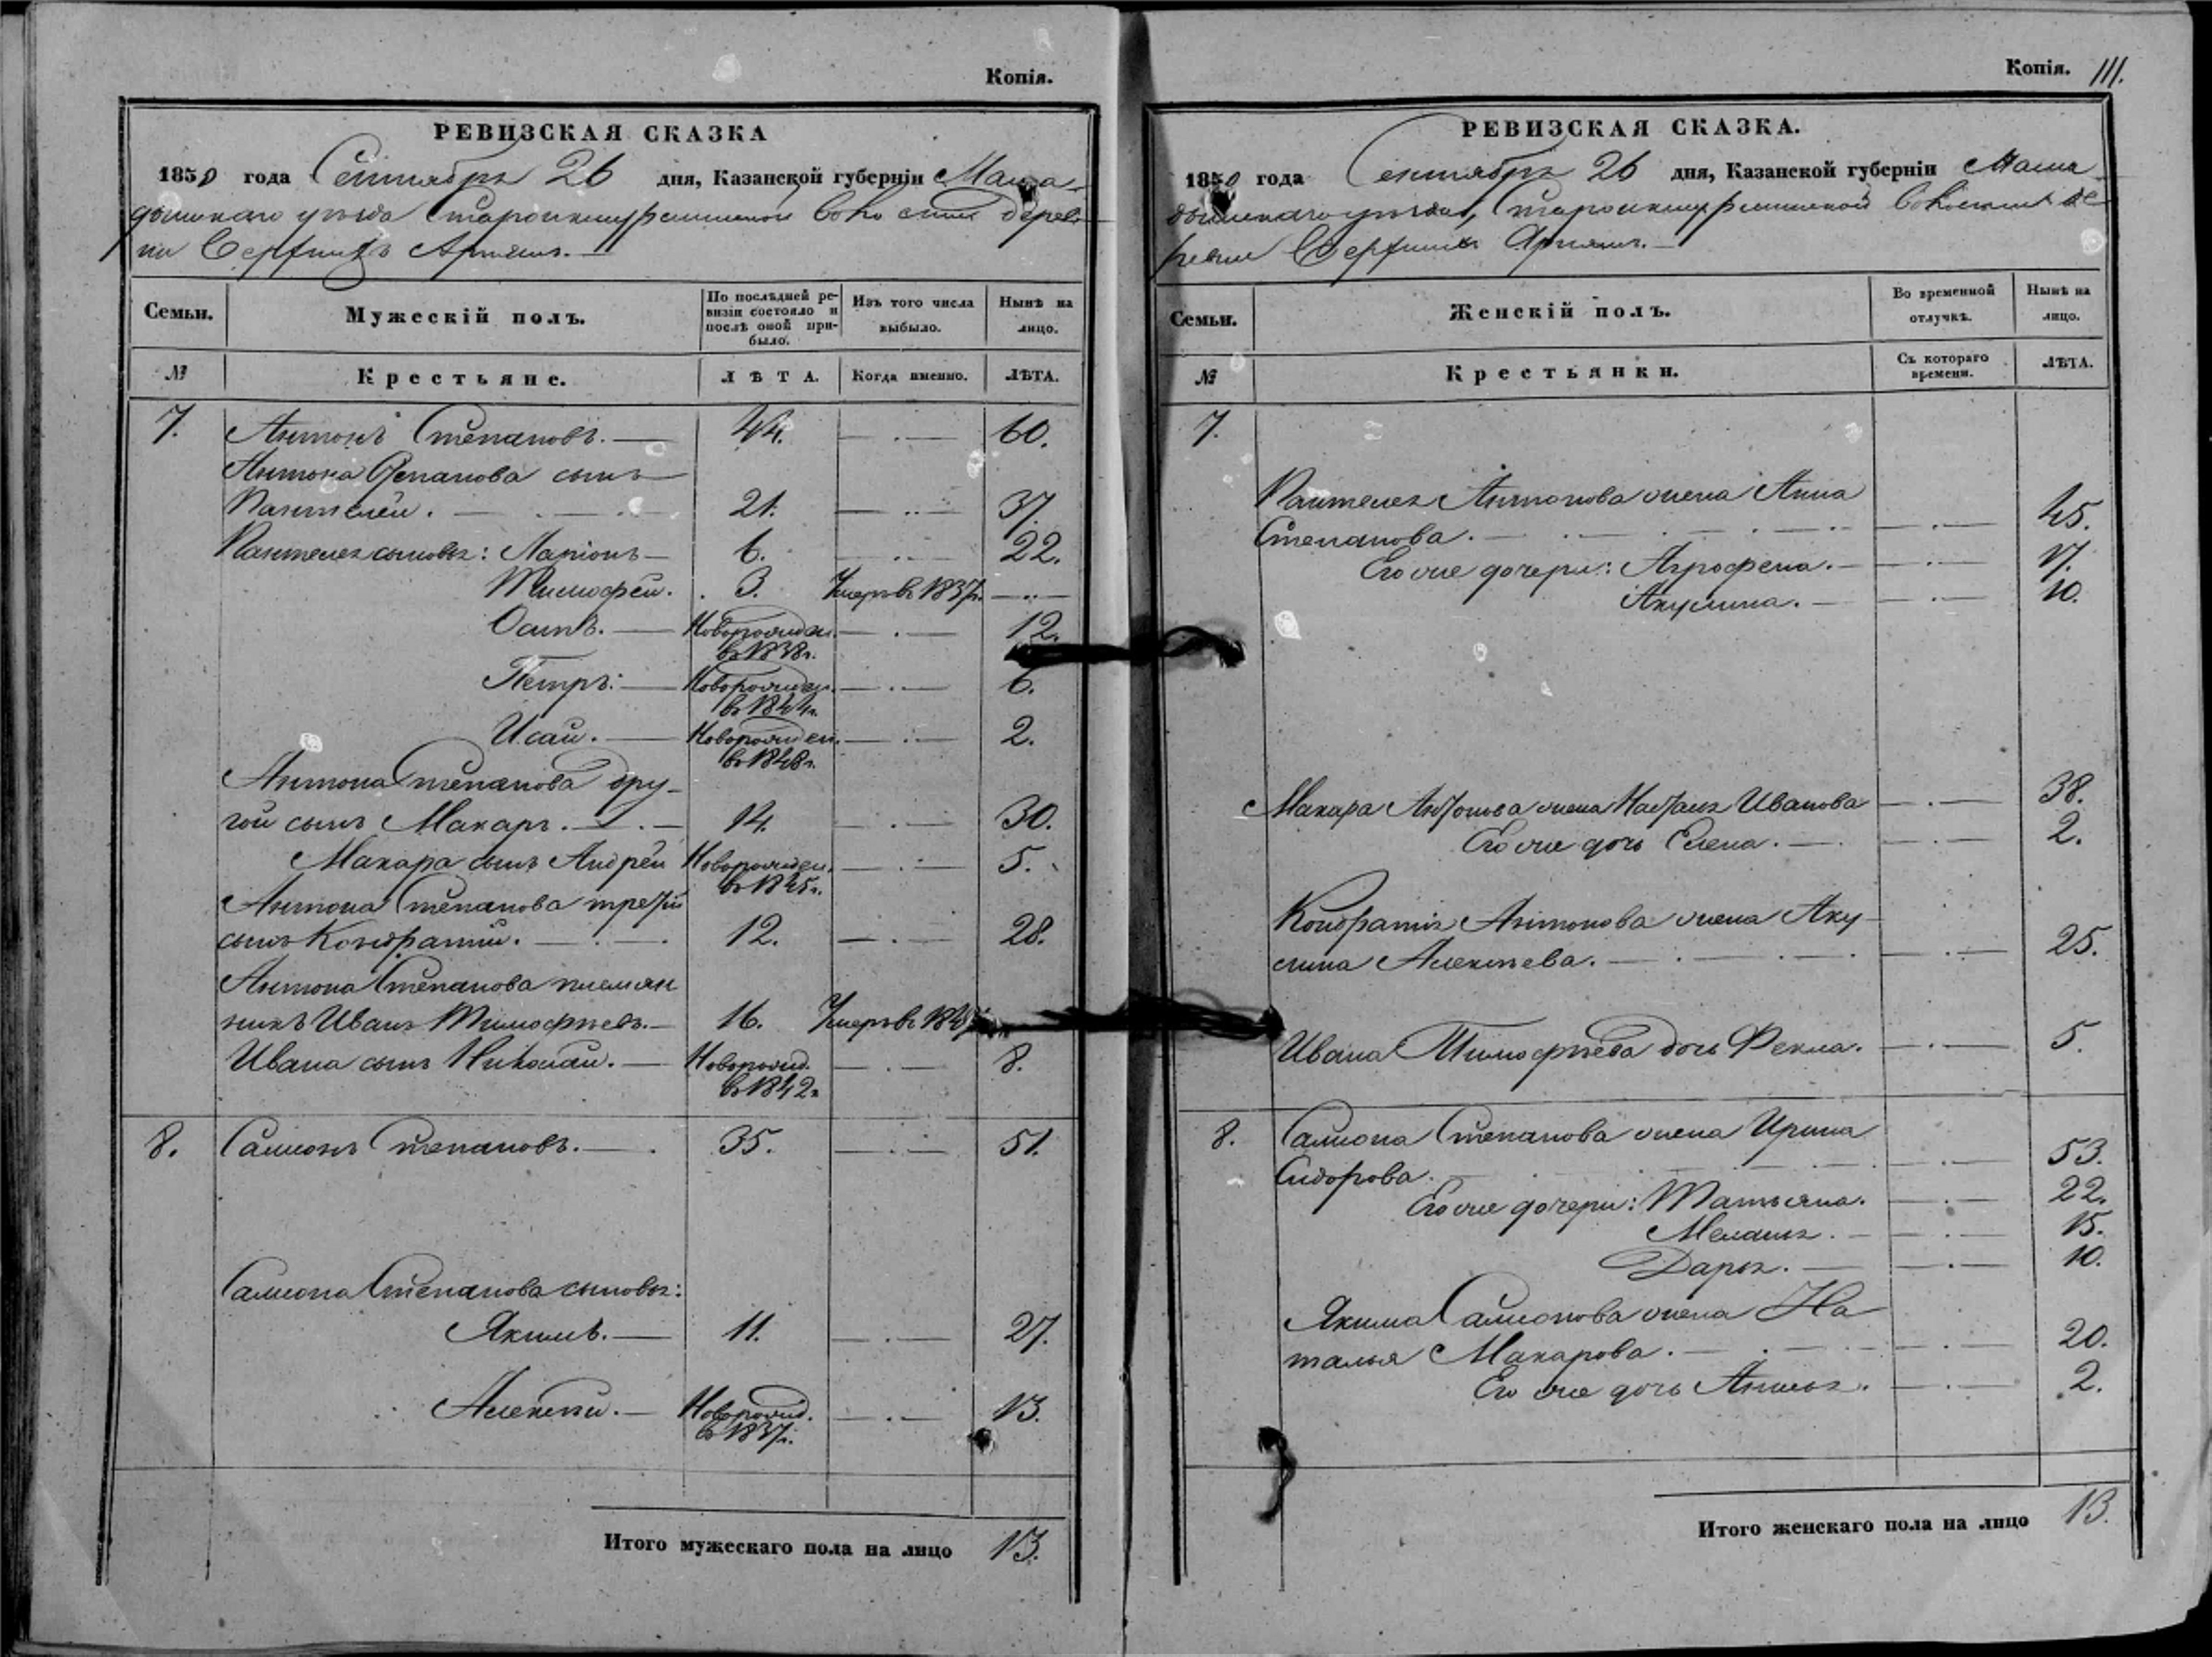 Копія.
РЕВИЗСКАЯ СКАЗКА
1850 года Сентября 26 дня, Казанской губерніи Мама-
дышскаго уѣзда волости дерев-
ни Верхнихъ
Семьи.
Мужескій полъ.
По послѣдней ре-
визіи состояло и
послѣ оной при-
было.
Изъ того числа
выбыло.
Нынѣ на
лицо.
№
Крестьяне.
ЛѢТА.
Когда именно.
ЛѢТА.
7. Антонъ Степановъ. 44. 60.
Антона Степанова сынъ
Пантелей. 21. 37.
Пантелея сыновья: Ларіонъ 6. 22.
Тимофей. 3. Умеръ въ 1837г.
Осипъ. Новорожден. 12.
въ 1838г.
Петръ: Новорожден. 6.
въ 1844г.
Исай. Новорожден. 2.
въ 1848г.
Антона Степанова дру-
гой сынъ Макаръ. 14. 30.
Макара сынъ Андрей Новорожден. 5.
въ 1845г.
Антона Степанова третій
сынъ Кондратій. 12. 28.
Антона Степанова племян
никъ Иванъ Тимофѣевъ. 16. Умеръ въ
Ивана сынъ Николай. Новорожд. 8.
въ 1842г
8. Самсонъ Степановъ. 35. 51.
Самсона Степанова сыновья:
Якимъ. 11. 27.
Алексѣй. Новорожд. 13.
въ 1837г.
Итого мужескаго пола на лицо 13.
Копія. 111.
РЕВИЗСКАЯ СКАЗКА.
1850 года Сентября 26 дня, Казанской губерніи Мама
дышскаго уѣзда, волости де
ревни Верхнихъ
Семьи.
Женскій полъ.
Во временной
отлучкѣ.
Нынѣ на
лицо.
№
Крестьянки.
Съ котораго
времени.
ЛѢТА.
7.
Пантелея Антонова жена Анна
Степанова. 45.
Его же дочери: Агрофена. 17.
Акулина. 10.
Макара Антонова жена Настасья Иванова 38.
Его же дочь Елена. 2.
Кондратія Антонова жена Аку-
лина Алексѣева. 25.
Ивана Тимофѣева дочь Фекла. 5.
8. Самсона Степанова жена Ирина
Сидорова. 53.
Его же дочери: Татьяна. 22.
Меланья. 15.
Дарья. 10.
Якима Самсонова жена На
талья Макарова. 20.
Его же дочь 2.
Итого женскаго пола на лицо 13.